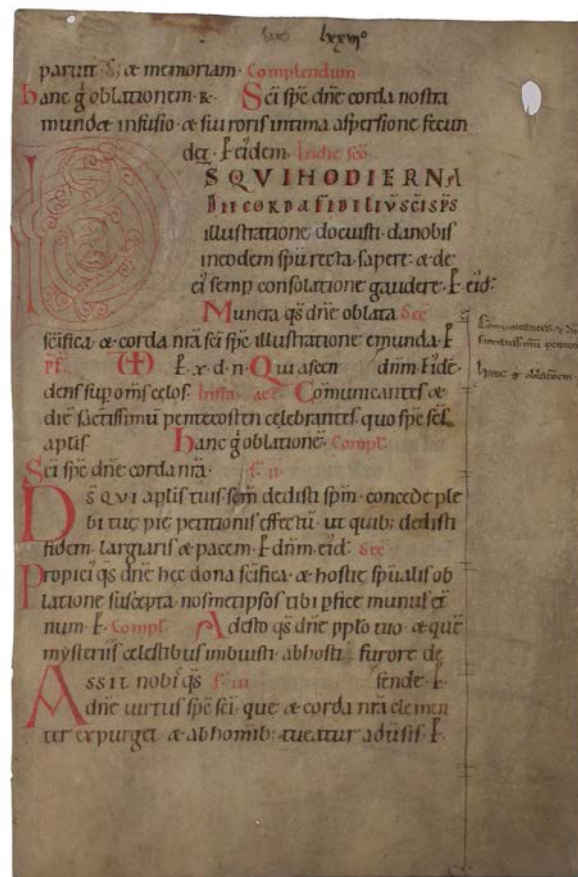 lxxvıº
parum S; & memoriam. Complendum.
hanc g̊ oblationem. &. Sc̄i sp̄c dn̄e corda nostra
mundet infusio. & sui roris intima aspersione fecun
det. P eidem. In die sc̄o
D S Q V I H O D I E R N A
DIE CORDA FIDELIV̄ SC̄I SP̄S
illustratione docuisti. da nobis
in eodem sp̄u recta sapere. & de
ei semp consolatione gaudere. P eid:
Munera qs dn̄e oblata Sec̄
sc̄ifica. & corda nr̄a sc̄i sp̄c illustratione emunda. P
P̄F. P x. d. n. Qui ascen dn̄m. P idē.
dens sup om̄s celos. Infra act̄. Cōmunicantes &
diē sac̄tissimū pentecosten celebrantes. quo sp̄c sc̄s
aplis. Hanc g̊ oblationē. Compl̄.
Sc̄i sp̄c dn̄e corda nr̄a. f. ii.
D S̄ Q V I aplis tuis sc̄m dedisti sp̄m. concede ple
bi tuę pię petitionis effectū. ut quib; dedisti
fidem. largiaris & pacem. P dn̄m. eid: Sec̄
Propici' qs dn̄e hec dona sc̄ifica. & hostię sp̄ualis ob
latione suscepta. nosmetipsos tibi pfice munus et̄
num. P. Compl̄. Adesto qs dn̄e pplo tuo. & quē
mysteriis cęlestibus imbuisti. ab hostiū furore de
Assit nobis qs f. iii. fende. P.
dn̄e uirtus sp̄c sc̄i. que & corda nr̄a clemen
ter expurget. & ab homib; tueatur aduersis. P.
Cōmunicantes & di
sacratissimū pentecos
hanc g̊ oblationem.